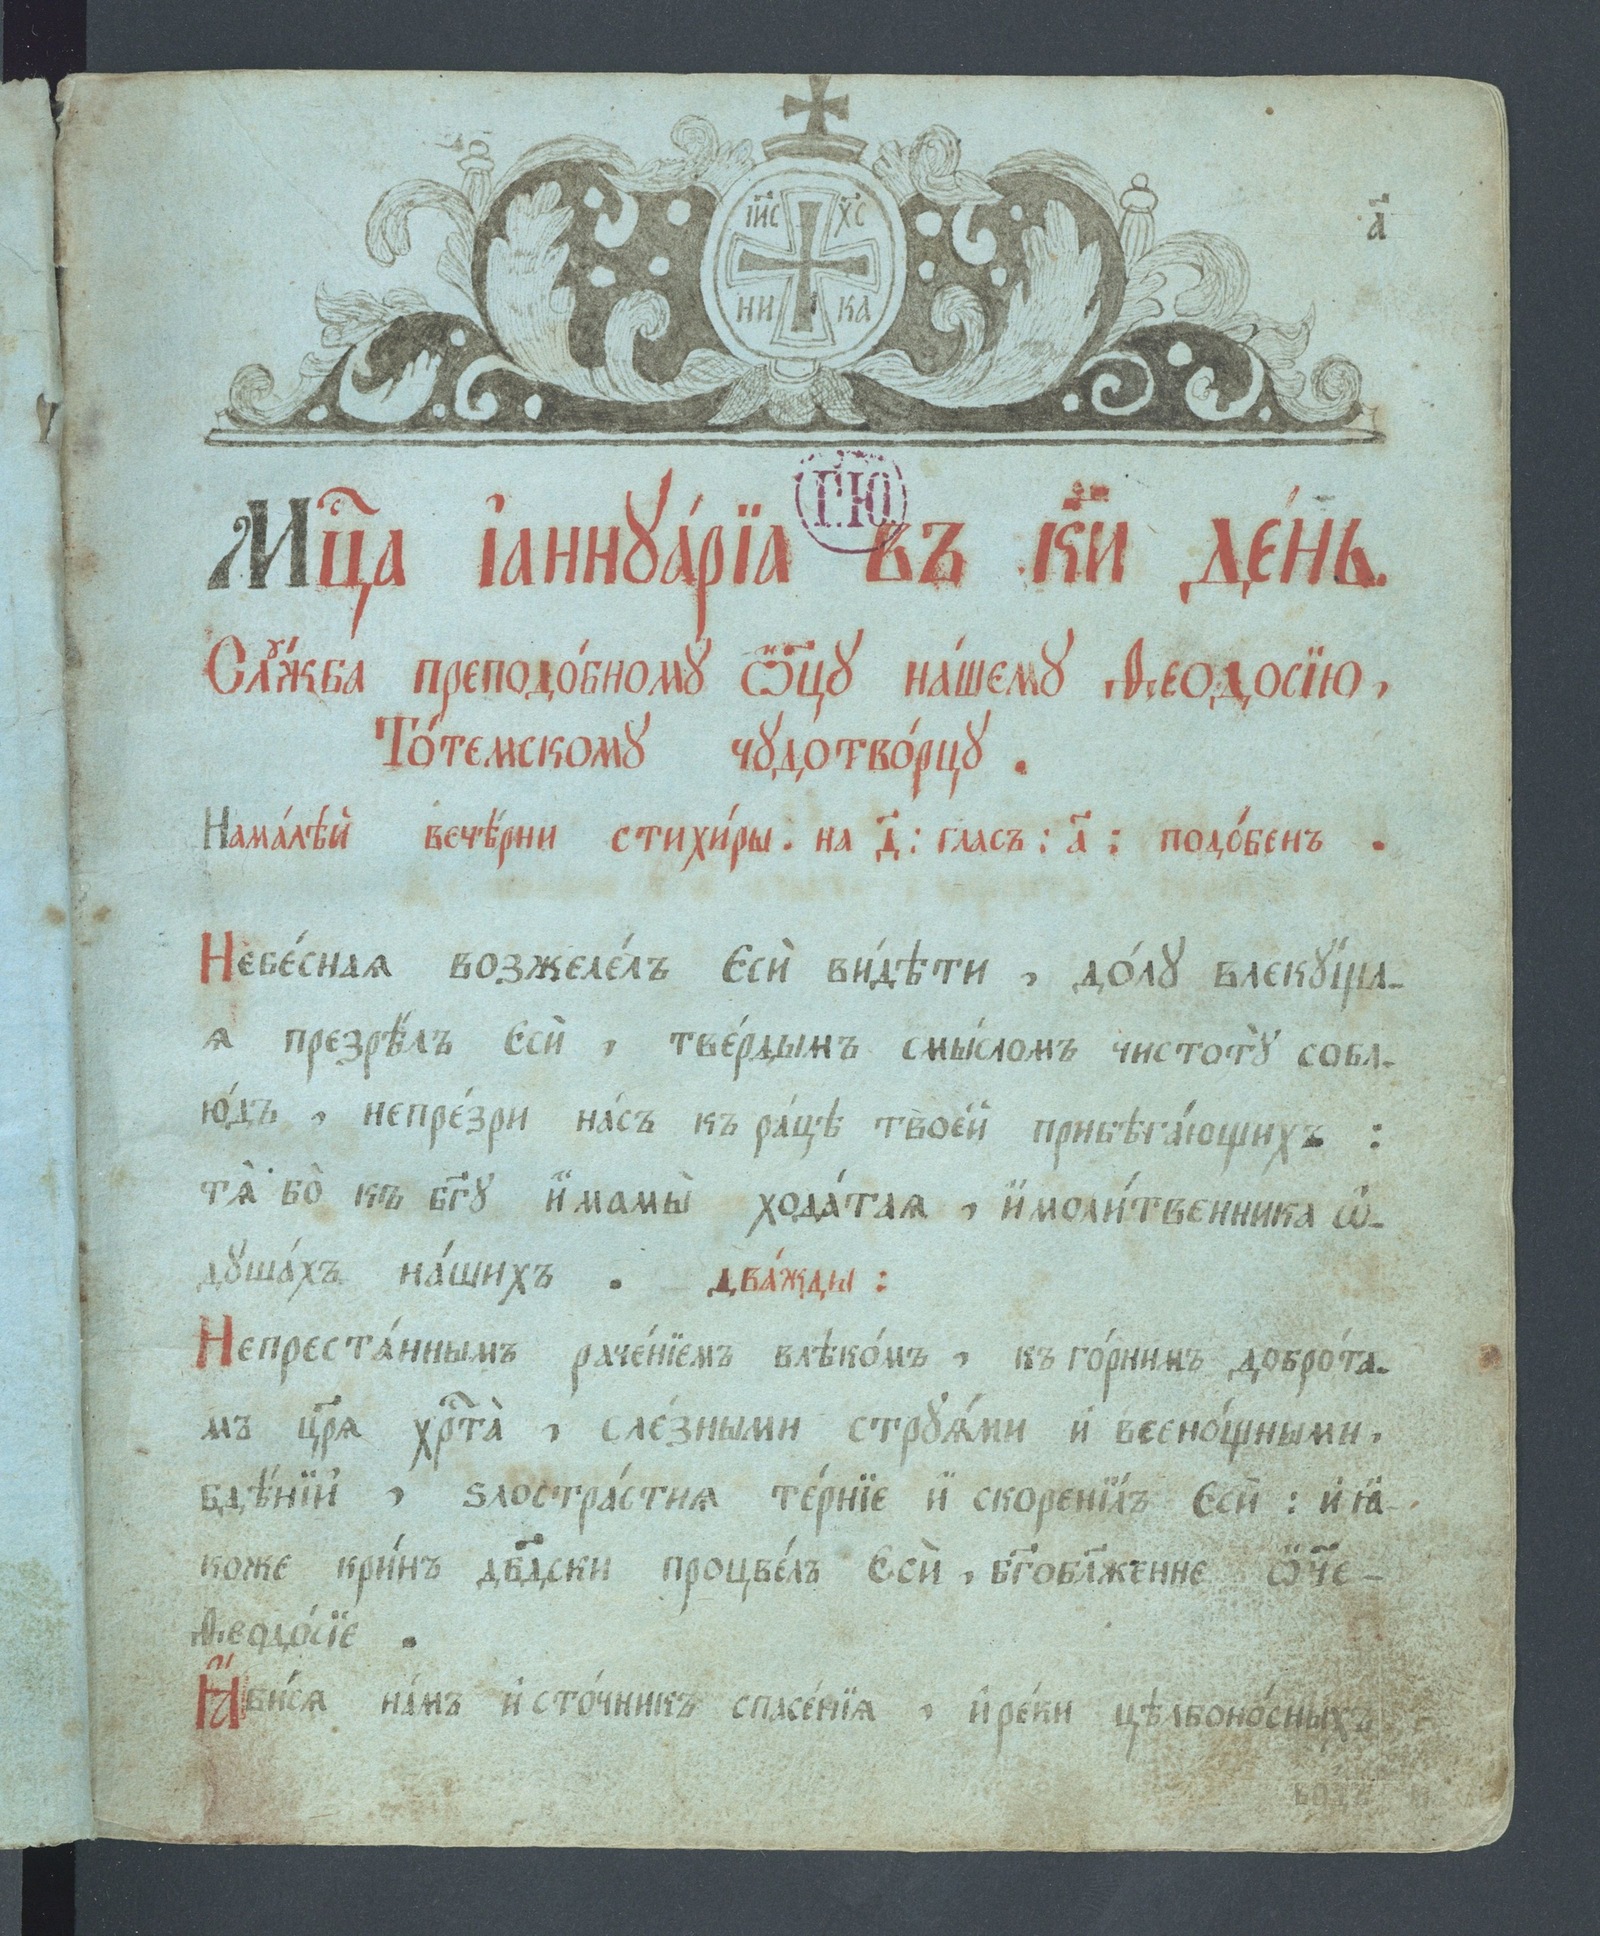 І҆И҃С Х҃С
НИ КА
а҃
Мц҇а і҆аннꙋа́рїа въ к҃и де́нь.
Г.Ю.
Слꙋ́жба преподо́бномꙋ ѻ҆тц҃ꙋ на́шемꙋ Ѳеодосїю,
То́темскомꙋ чꙋдотво́рцꙋ .
Нама́лѣй вече́рни стихи́ры . на д҃ : гласъ : а҃ : подо́бенъ .
Небе́снаѧ возжеле́лъ Єсѝ ви́дѣти , до́лꙋ влекꙋ́ща-
ѧ презрѣ́лъ Єсѝ , тве́рдымъ смы́сломъ чистотꙋ̀ собл-
ю́дъ , непре́зри на́съ къ ра́цѣ твоє́й прибѣга́ющихъ :
тѧ̀ бо̀ къ бг҃ꙋ и҆́мамы̀ хода́таѧ , и҆моли́твенника ѡ҆-
дꙋша́хъ на́шихъ . два́жды :
Непреста́ннымъ раче́нїемъ влѣко́мъ , къ го́рнимъ добро́та-
мъ цр҃ѧ хрⷭ҇та̀ , сле́зными стрꙋѧ́ми и҆ всено́щными,
бдѣ́нїи , ѕлостра́стнѧ те́рнїе и҆ скоренїлъ Єсѝ : и҆ ꙗ҆-
коже кри́нъ дв҃дски процве́лъ Єсѝ , бг҃обл҃женне ѻ҆́ч҃е-
Ѳеодо́сїе .
Ꙗ҆ви́сѧ на́мъ и҆сто́чникъ спасе́нїѧ , и҆ ре́ки цѣлбоно́сныхъ
водъ